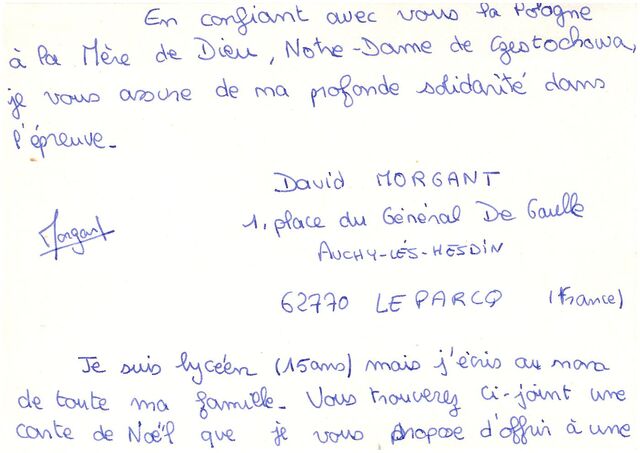 En confiant avec vous la Pologne
à la Mère de Dieu, Notre-Dame de Częstochowa,
je vous assure de ma profonde solidarité dans
l'épreuve_
David MORGANT
Morgant
1, place du Général De Gaulle
AUCHY-LÈS-HESDIN
62770 LE PARCQ (France)
Je suis lycéen (15ans) mais j'écris au nom
de toute ma famille_ Vous trouverez ci-joint une
carte de Noël que je vous propose d'offrir à une